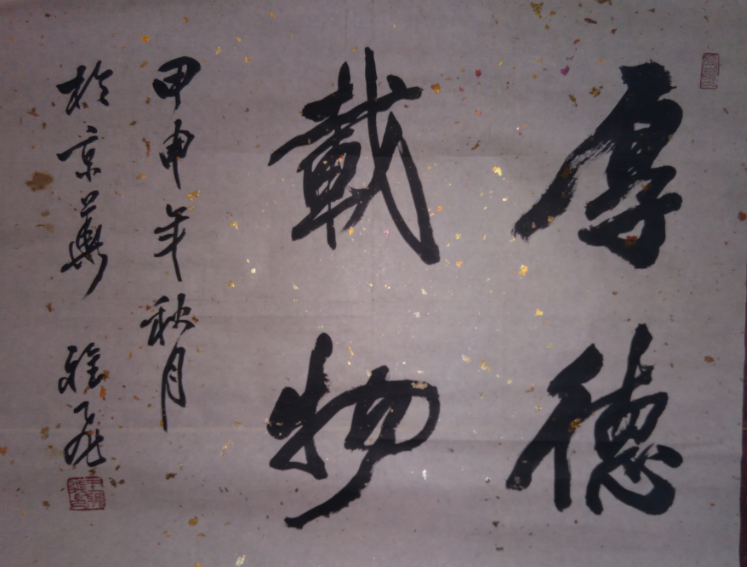 厚德
載物
甲申年秋月
於京華